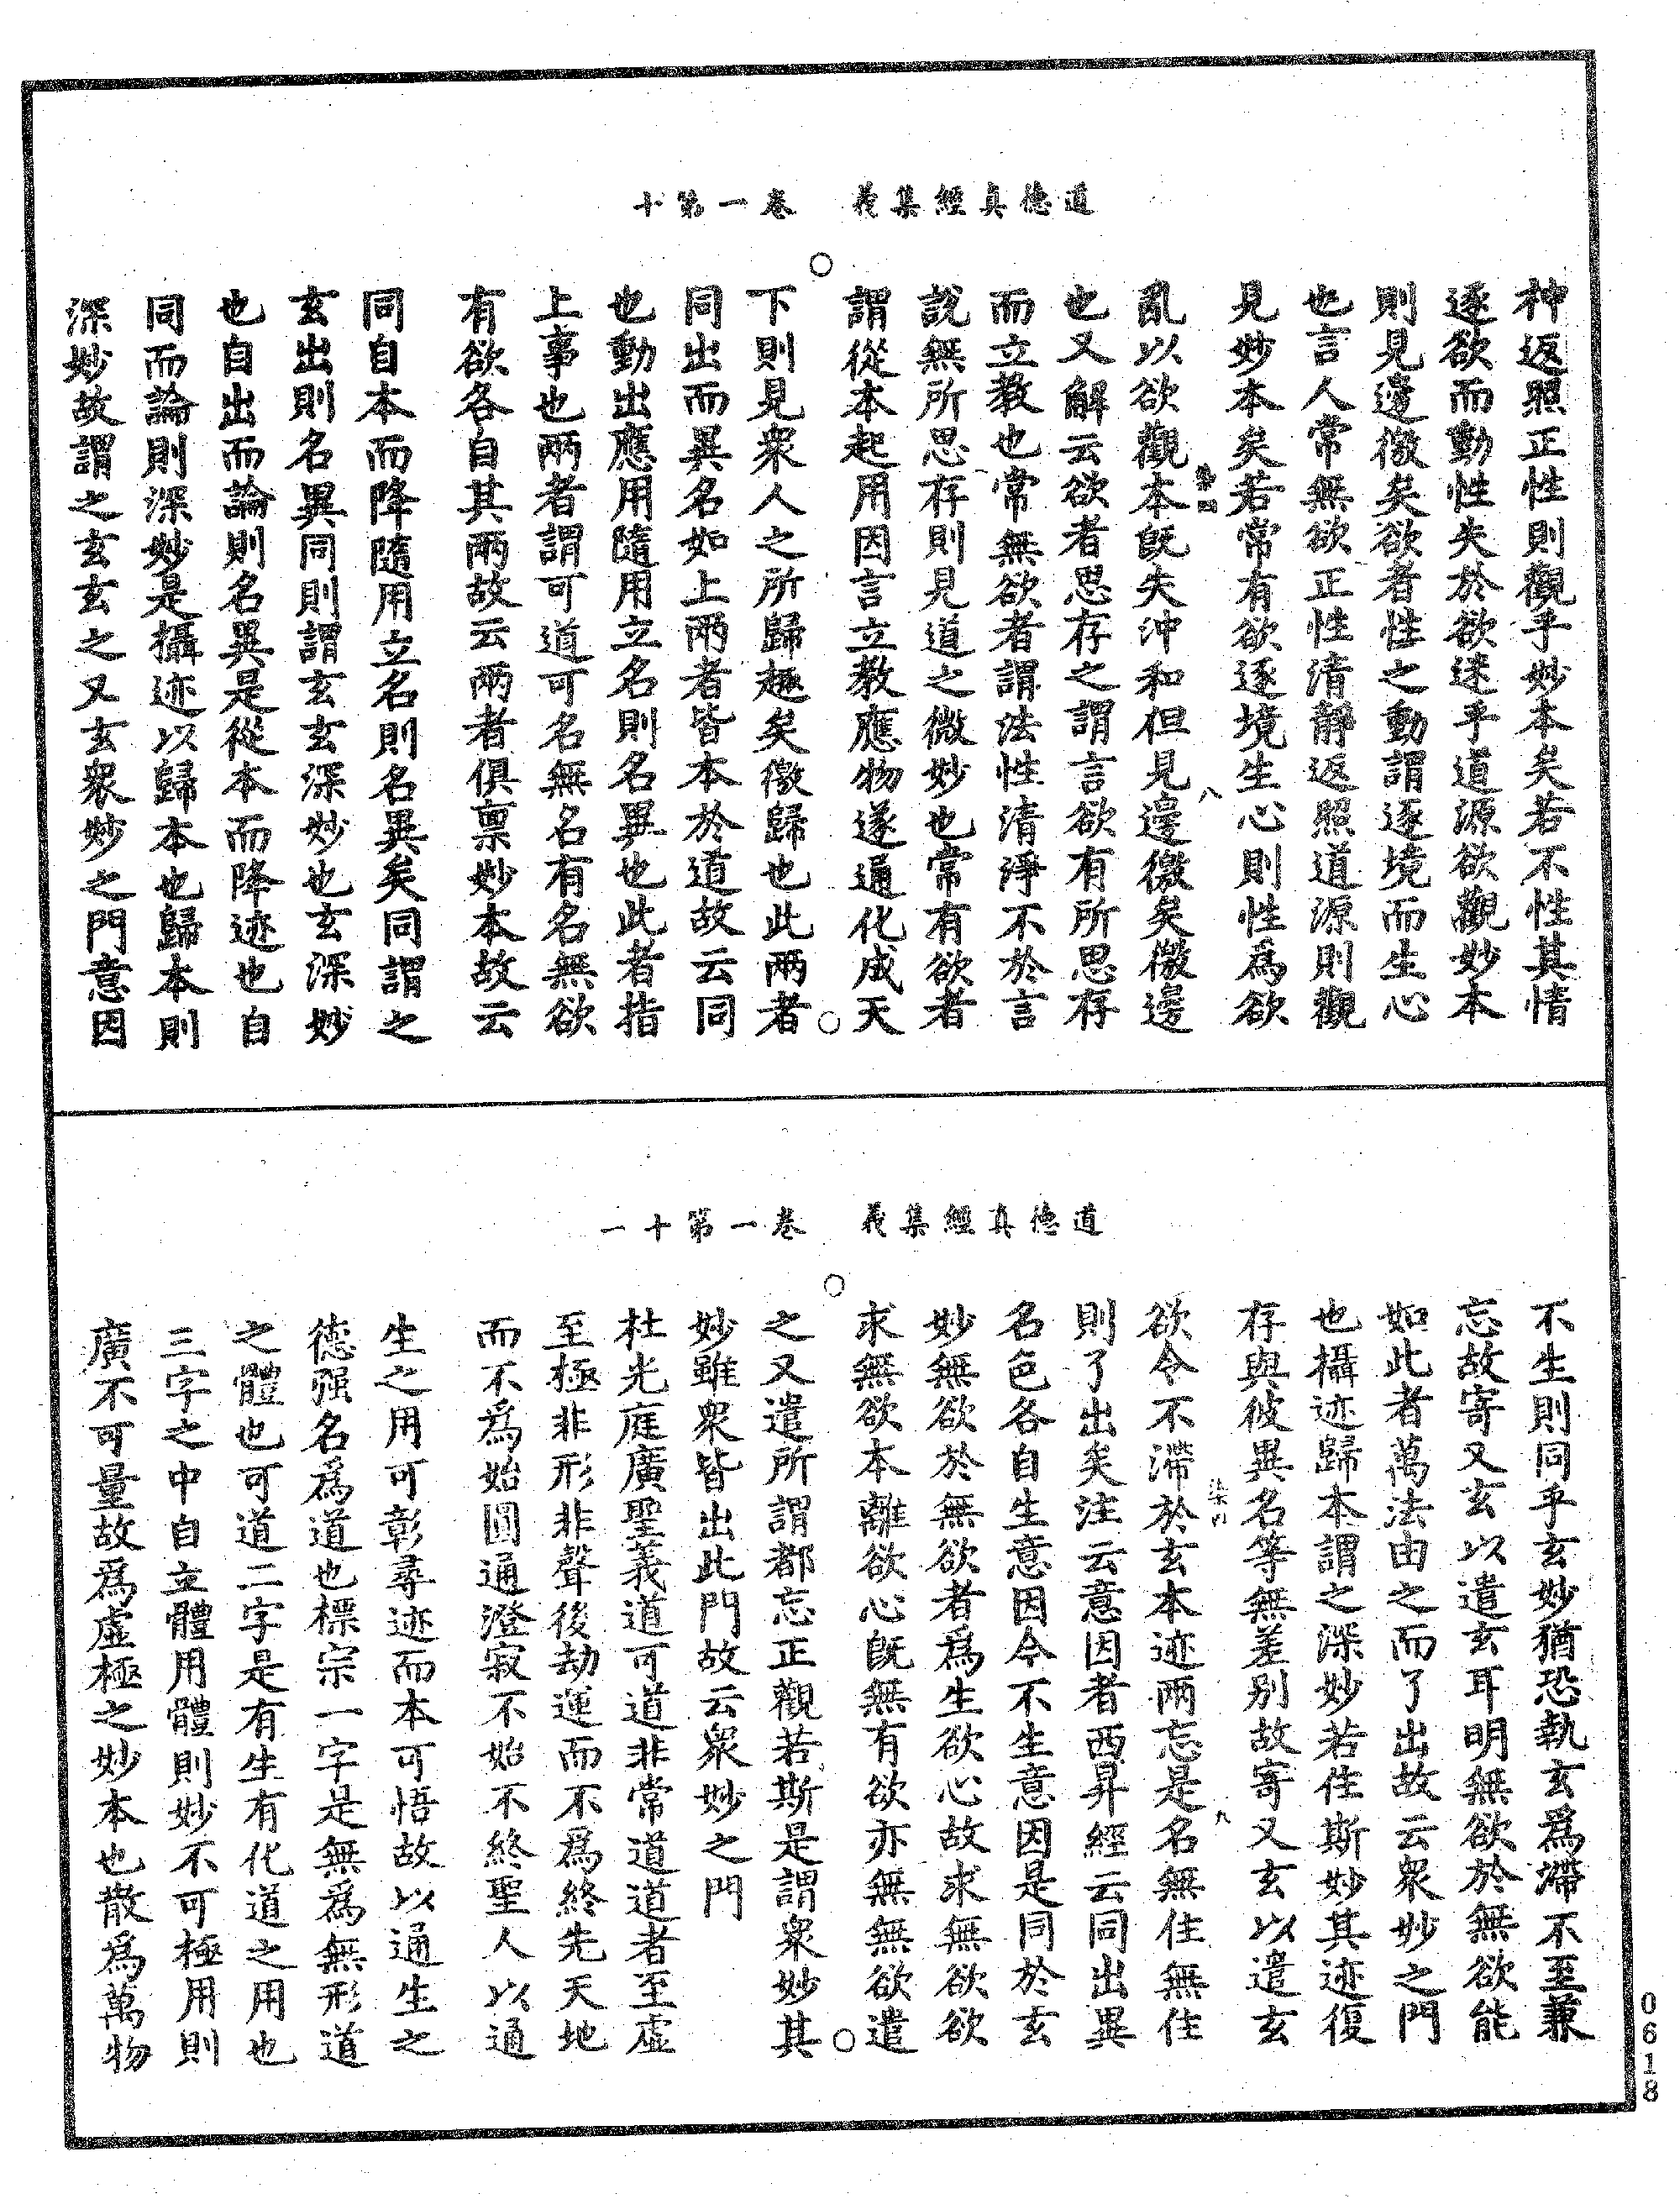 道德真經集義　卷一第十
神返照正性則觀乎妙本矣若不性其情
逐欲而動性失於欲迷乎道源欲觀妙本
則見邊徼矣欲者性之動謂逐境而生心
也言人常無欲正性清靜返照道源則觀
見妙本矣若常有欲逐境生心則性爲欲
亂以欲觀本旣失沖和但見邊徼矣徼邊
八
也又解云欲者思存之謂言欲有所思存
而立教也常無欲者謂法性清淨不於言
說無所思存則見道之微妙也常有欲者
謂從本起用因言立教應物遂通化成天
下則見衆人之所歸趣矣徼歸也此兩者
同出而異名如上兩者皆本於道故云同
也動出應用隨用立名則名異也此者指
上事也兩者謂可道可名無名有名無欲
有欲各自其兩故云兩者俱稟妙本故云
同自本而降隨用立名則名異矣同謂之
玄出則名異同則謂玄玄深妙也玄深妙
也自出而論則名異是從本而降迹也自
同而論則深妙是攝迹以歸本也歸本則
深妙故謂之玄玄之又玄衆妙之門意因
道德真經集義　卷一第十一
不生則同乎玄妙猶恐執玄爲滯不至兼
忘故寄又玄以遣玄耳明無欲於無欲能
如此者萬法由之而了出故云衆妙之門
也攝迹歸本謂之深妙若住斯妙其迹復
存與彼異名等無差別故寄又玄以遣玄
欲令不滯於玄本迹兩忘是名無住無住
九
則了出矣注云意因者西昇經云同出異
名色各自生意因今不生意因是同於玄
妙無欲於無欲者爲生欲心故求無欲欲
求無欲本離欲心旣無有欲亦無無欲遣
之又遣所謂都忘正觀若斯是謂衆妙其
妙雖衆皆出此門故云衆妙之門
杜光庭廣聖義道可道非常道道者至虛
至極非形非聲後劫運而不爲終先天地
而不爲始圓通澄寂不始不終聖人以通
生之用可彰尋迹而本可悟故以通生之
德强名爲道也標宗一字是無爲無形道
之體也可道二字是有生有化道之用也
三字之中自立體用體則妙不可極用則
廣不可量故爲虛極之妙本也散爲萬物
0618